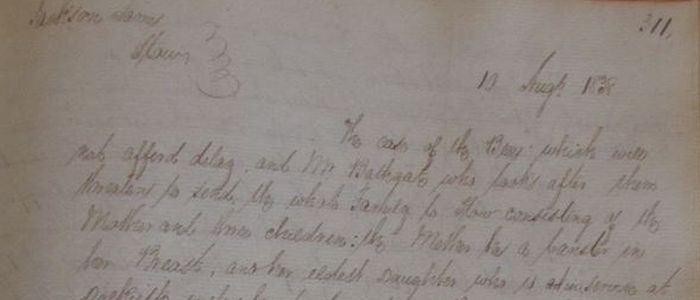 311,
Stow
10 Augt 1838
The case of the Boy which will
not afford delay, and Mr Bathgate who looks after them
threatens to send the whole Family to Stow consisting of the
Mother and three children: the Mother has a in
her Breast, and her eldest Daughter who is in service at